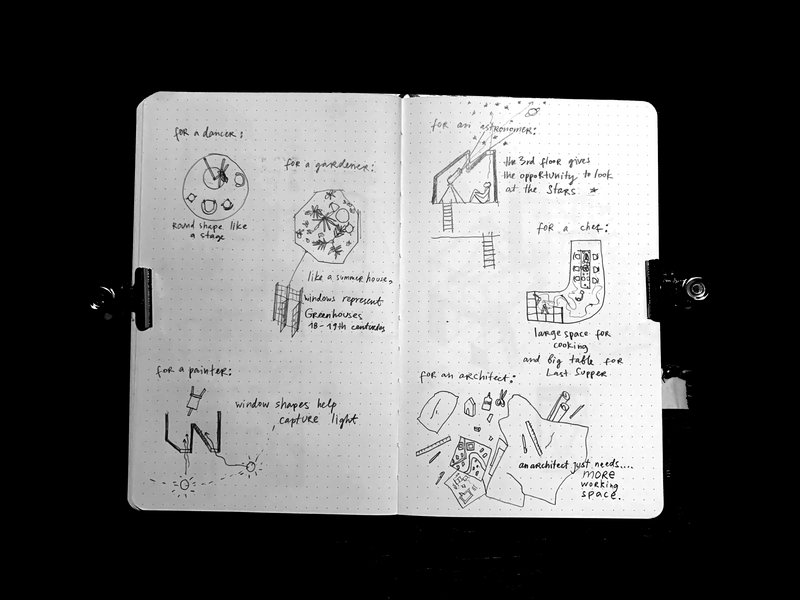 for a dancer:
Round shape like
a stage
for a gardener:
like a summerhouse,
windows represent
Greenhouses
18-19th centuries
for a painter:
window shapes help
capture light
for an astronomer:
the 3rd floor gives
the opportunity to look
at the stars
for a chef:
large space for
cooking
and big table for
Last Supper.
for an architect:
an architect just needs....
MORE
working
space.